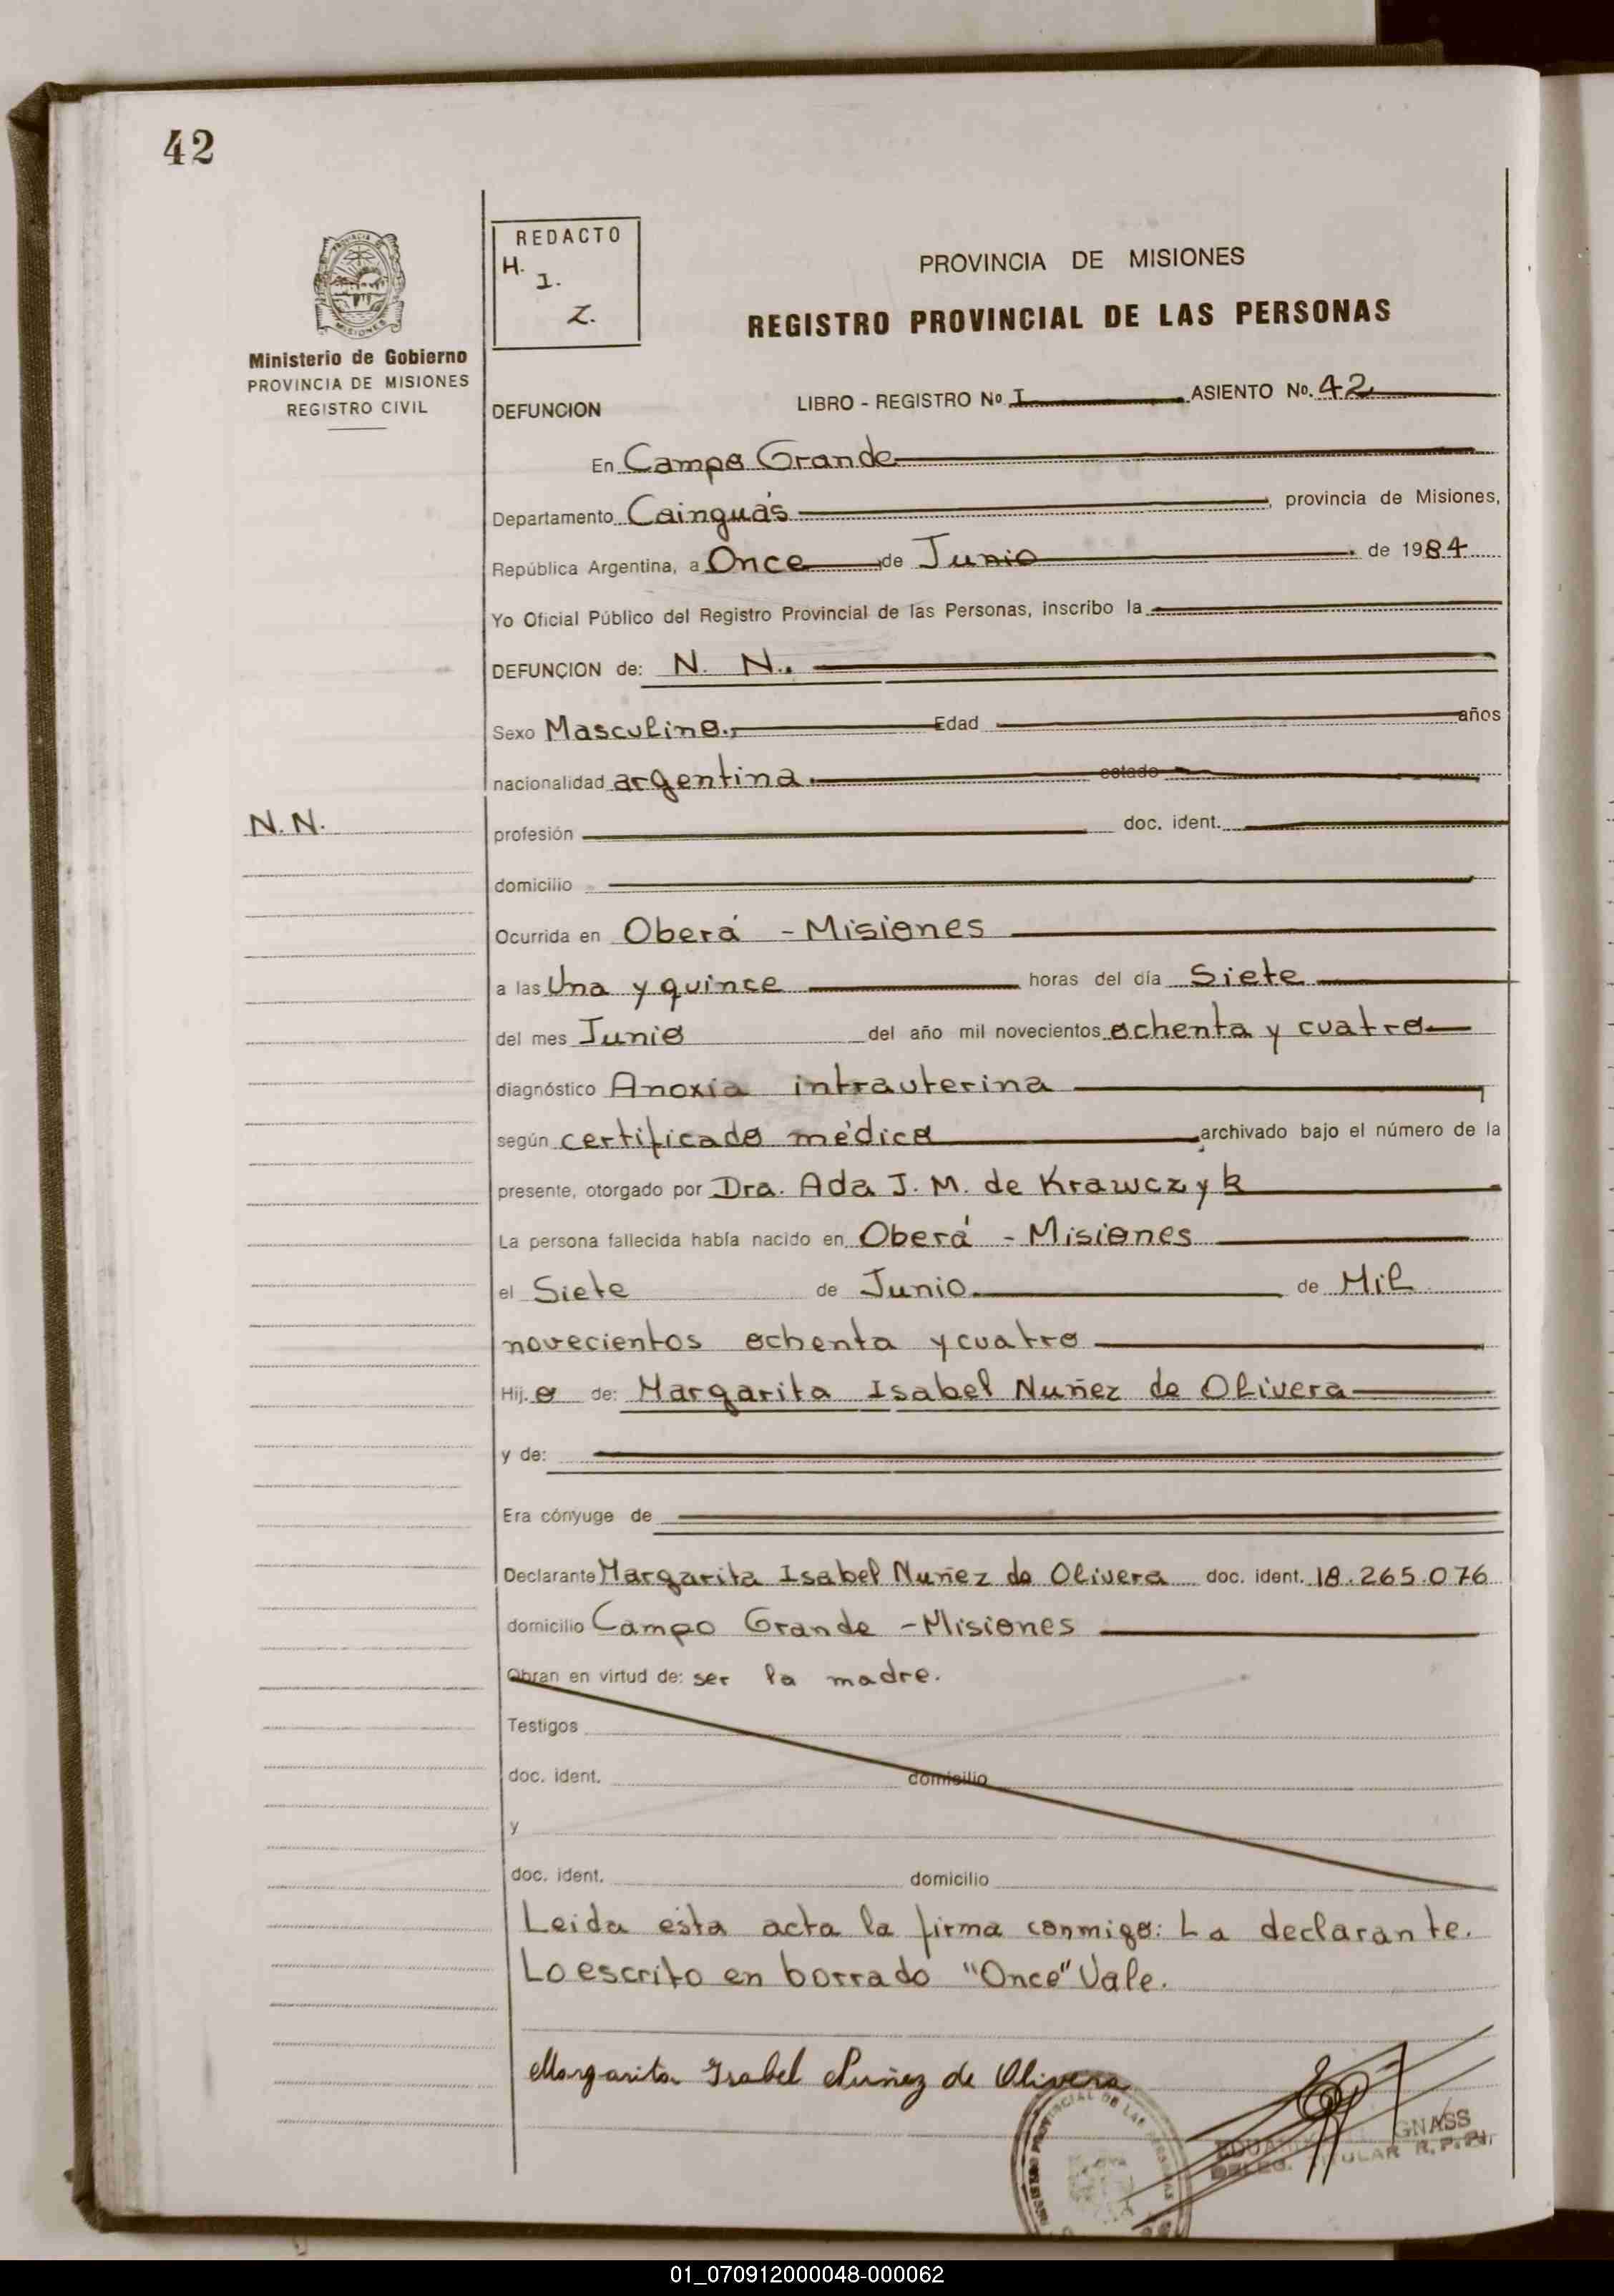 42
REDACTO
H.
I.
Z.
PROVINCIA DE MISIONES
MISIONES
REGISTRO PROVINCIAL DE LAS PERSONAS
Ministerio de Gobierno
PROVINCIA DE MISIONES
REGISTRO CIVIL
DEFUNCION LIBRO - REGISTRO Nº I ASIENTO Nº. 42
En Campo Grande
Departamento Cainguás, provincia de Misiones,
República Argentina, a Once de Junio de 1984
Yo Oficial Público del Registro Provincial de las Personas, inscribo la
DEFUNCION de: N. N.
Sexo Masculino. Edad años
nacionalidad argentina. estado
N.N.
profesión doc. ident.
domicilio
Ocurrida en Oberá - Misiones
a las Una y quince horas del día Siete
del mes Junio del año mil novecientos ochenta y cuatro
diagnóstico Anoxia intrauterina
según certificado médico archivado bajo el número de la
presente, otorgado por Dra. Ada J. M. de Krawczyk
La persona fallecida había nacido en Oberá - Misiones
el Siete de Junio de Mil
novecientos ochenta y cuatro
Hij.o de: Margarita Isabel Nuñez de Olivera
y de:
Era cónyuge de
Declarante Margarita Isabel Nuñez de Olivera doc. ident. 18.265.076
domicilio Campo Grande - Misiones
Obran en virtud de: ser la madre.
Testigos
doc. ident. domicilio
y
doc. ident. domicilio
Leida ésta acta la firma conmigo: La declarante.
Lo escrito en borrado "Once" Vale.
Margarita Isabel Nuñez de Olivera
PROVINCIAL DE LAS
GNASS
R.P.P.
01_070912000048-000062